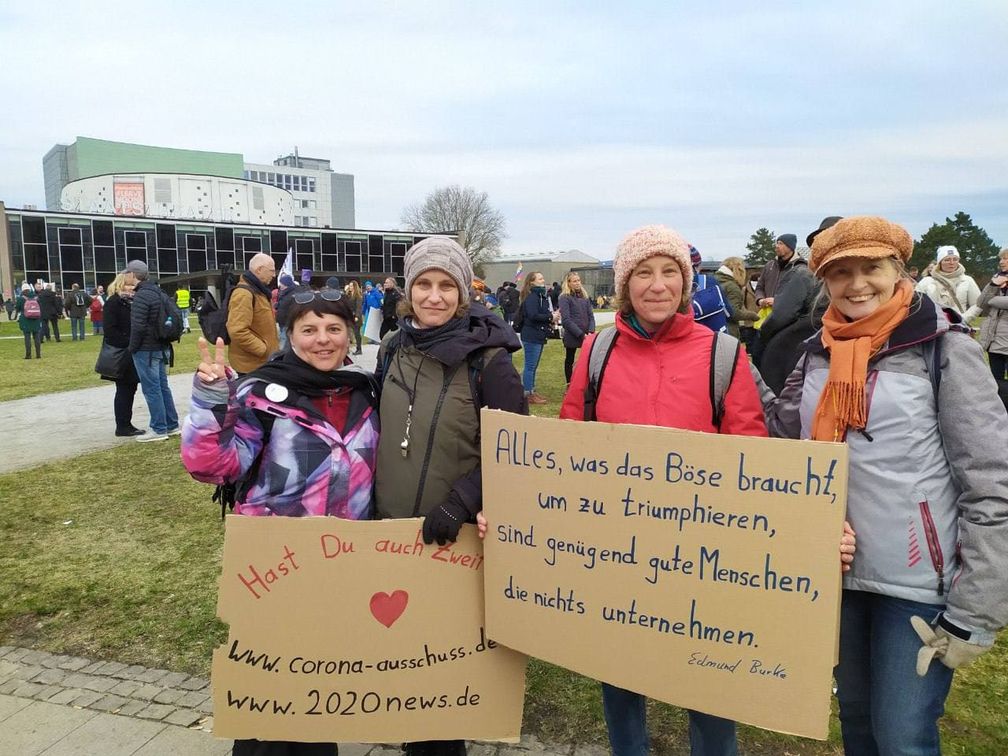 Hast Du auch Zweif
www.corona-ausschuss.de
www.2020news.de
Alles, was das Böse braucht,
um zu triumphieren,
sind genügend gute Menschen,
die nichts unternehmen.
Edmund Burke